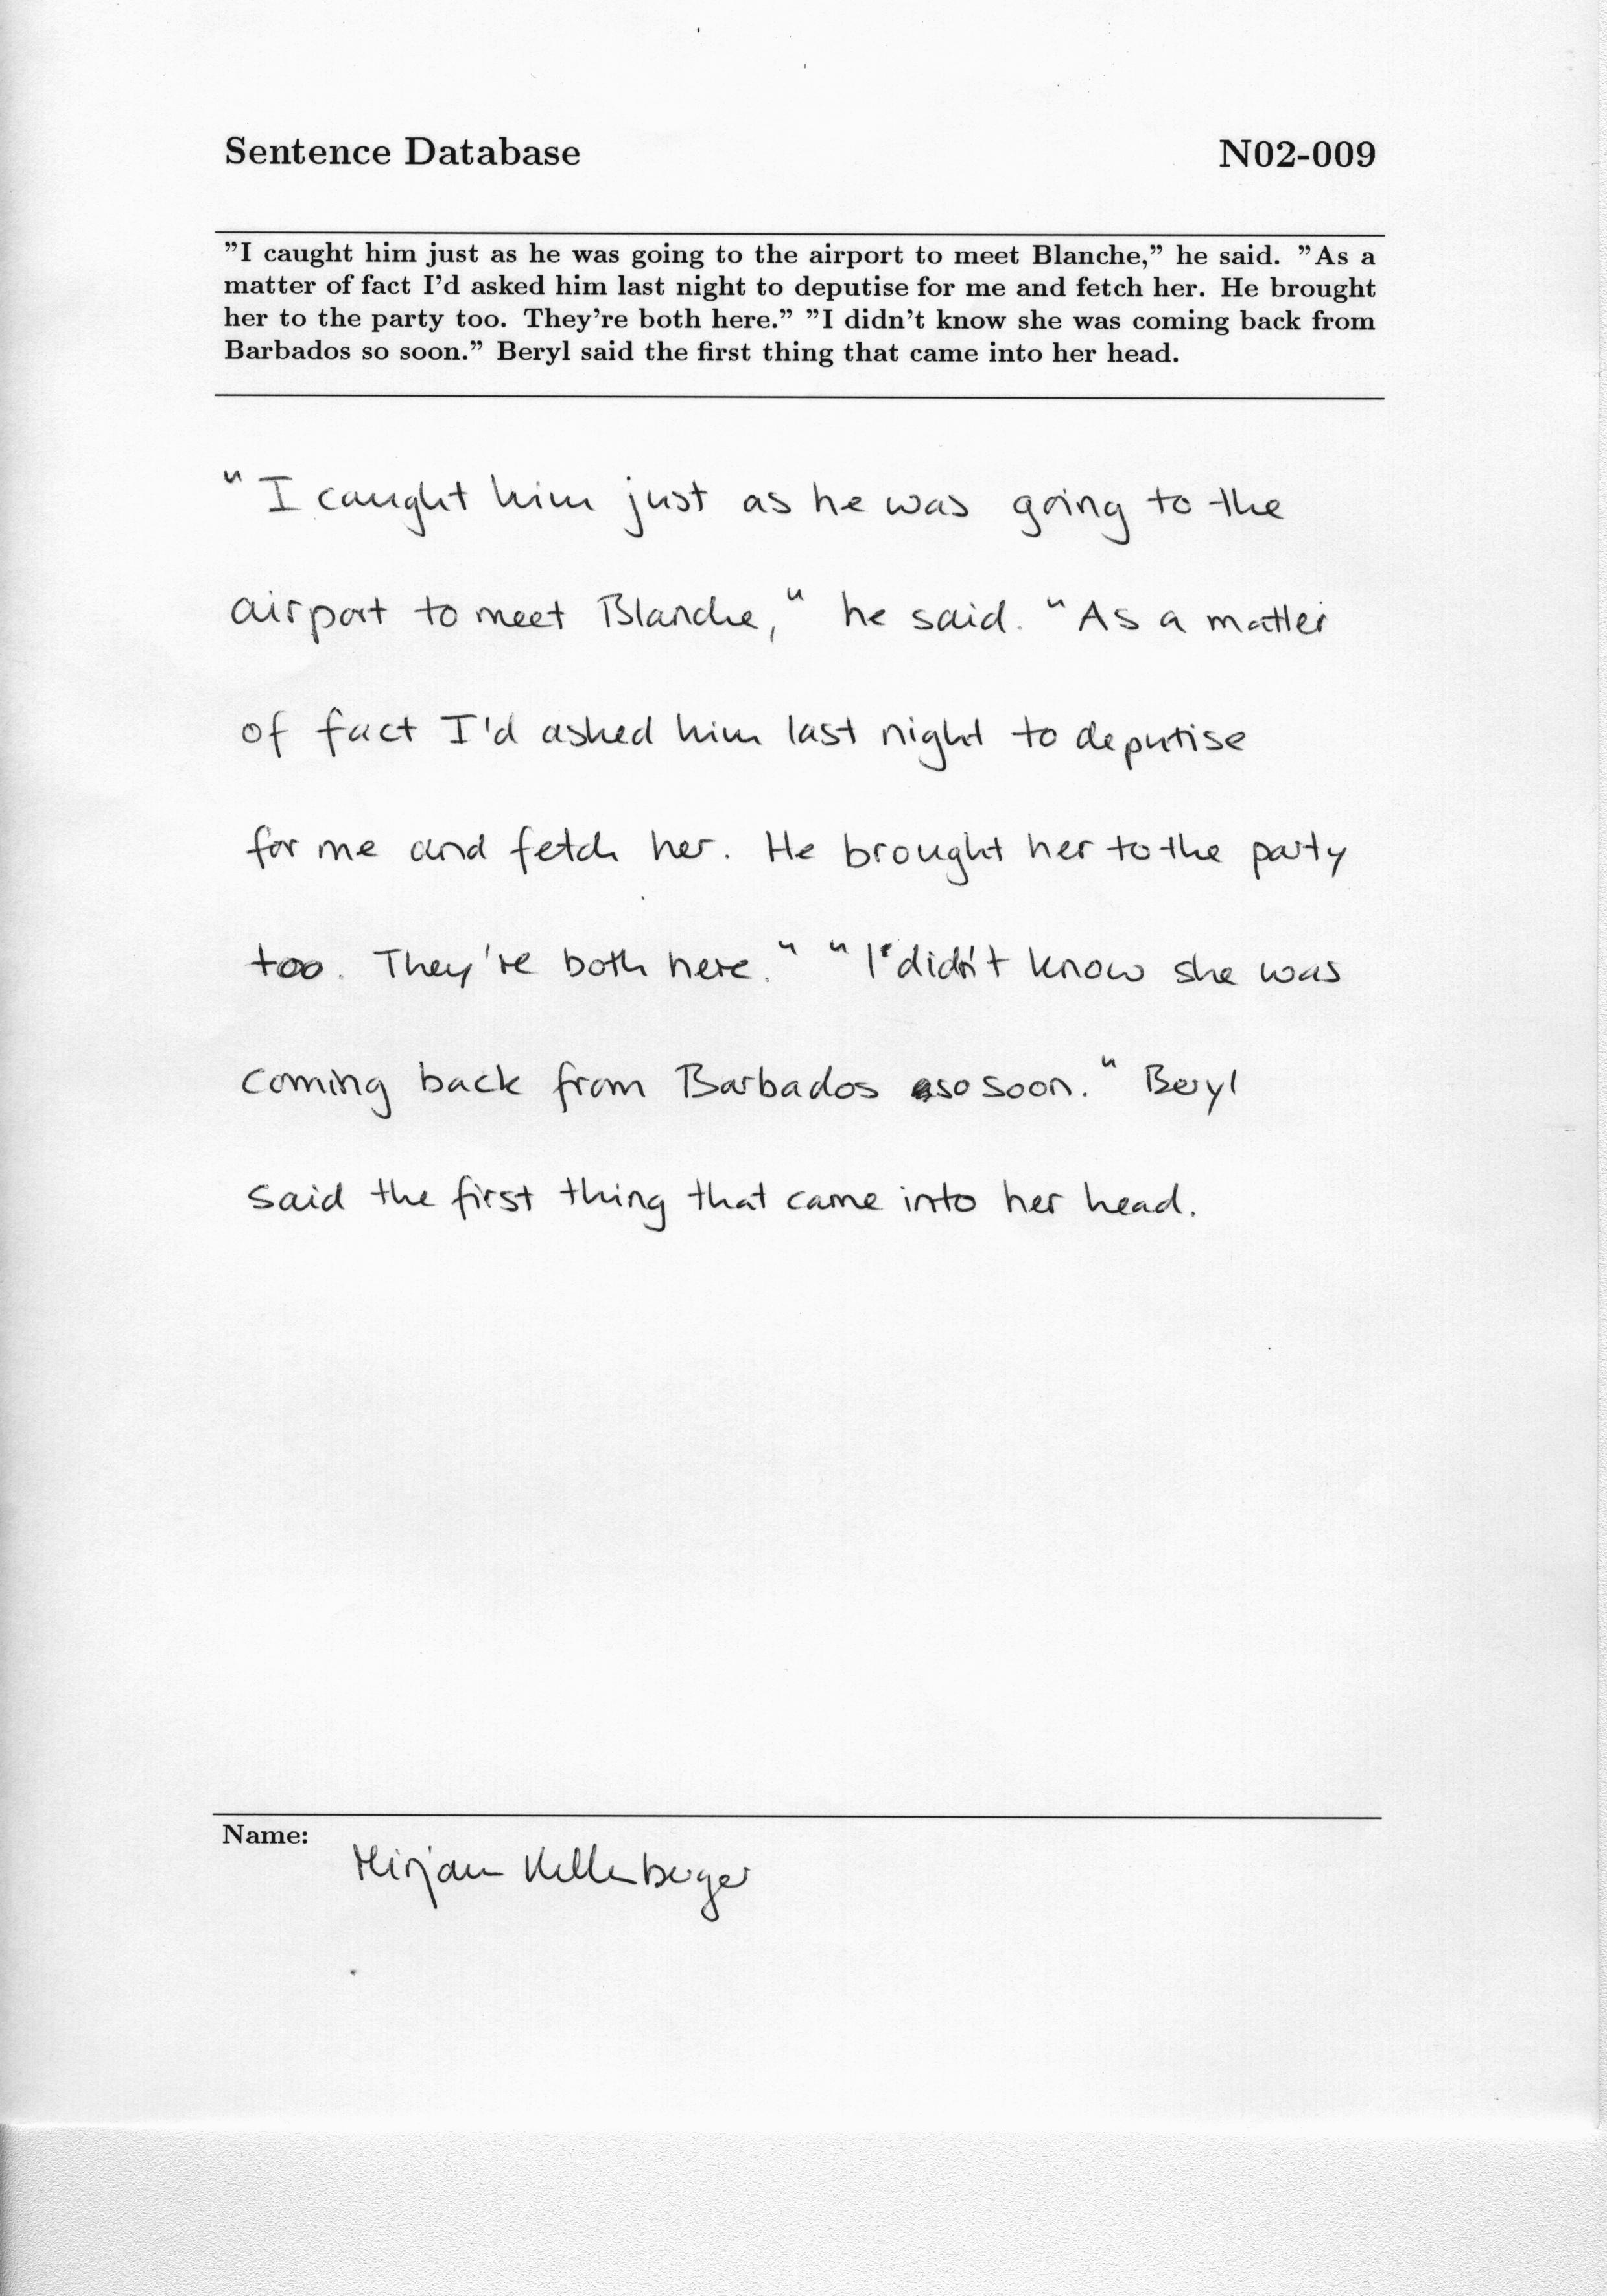 Sentence Database N02-009
"I caught him just as he was going to the airport to meet Blanche," he said. "As a
matter of fact I'd asked him last night to deputise for me and fetch her. He brought
her to the party too. They're both here." "I didn't know she was coming back from
Barbados so soon." Beryl said the first thing that came into her head.
"I caught him just as he was going to the
airport to meet Blanche," he said. "As a matter
of fact I'd asked him last night to deputise
for me and fetch her. He brought her to the party
too. They're both here." "I didn't know she was
coming back from Barbados so soon." Beryl
said the first thing that came into her head.
Name:
Mirjam Kellenberger